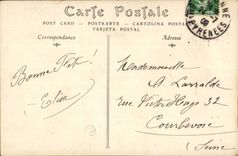 Carte Postale
POST CARD — POSTKARTE — CARTOLINA POSTALE
TARJETA POSTAL
Correspondance
Adresse
PYRENEES
09
Bonne Fête!
Elise
Mademoiselle
A. Larralde
Rue Victor Hugo 32
Courbevoie
Seine